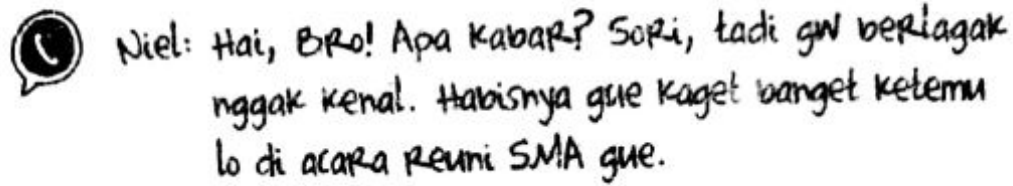 Niel: Hai, BRo! Apa KabaR? SoRi, tadi gw beRlagak
nggak kenal. Habisnya gue kaget banget ketemu
lo di acaRa Reuni SMA gue.